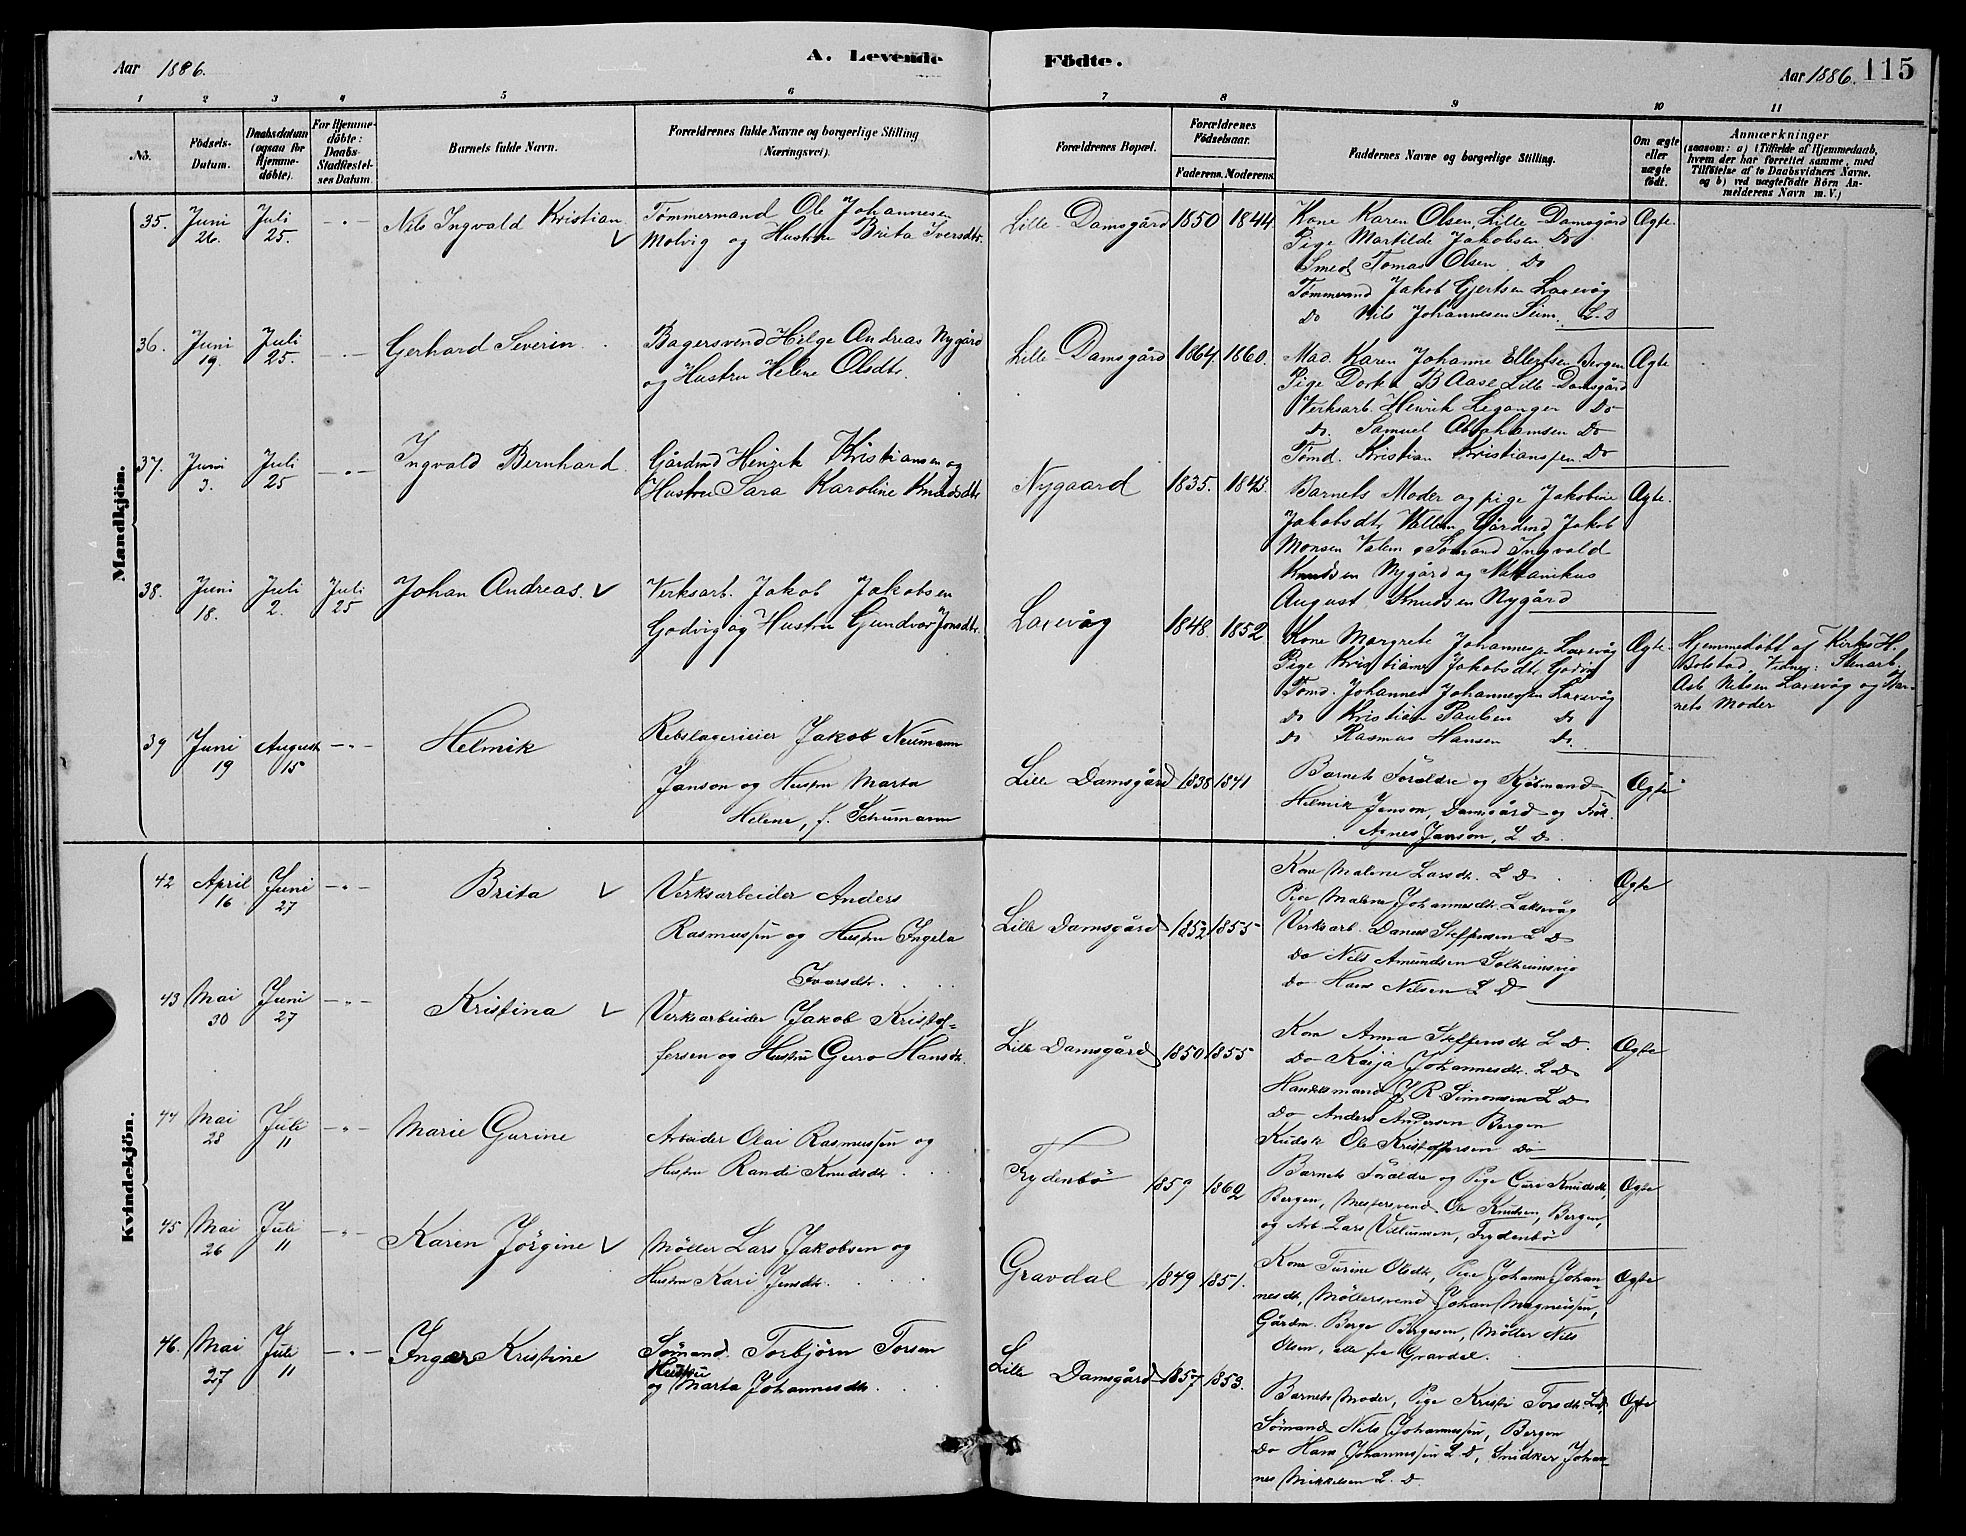 Aar 1886.
A. Levende
Födte.
Aar 1886.
115
1 2 3 4 5 6 7 8 9 10 11
No.
Födsels-
Datum.
Daabsdatum
(ogsaa for
Hjemme-
döbte).
For Hjemme-
döbte:
Daabs-
Stadfæstel-
ses Datum.
Barnets fulde Navn.
Forældrenes fulde Navne og borgerlige Stilling
(Næringsvei).
Forældrenes Bopæl.
Forældrenes
Födselsaar.
Faderens. Moderens.
Faddernes Navne og borgerlige Stilling.
Om ægte
eller
uægte
födt.
Anmærkninger
(saasom: a) i Tilfælde af Hjemmedaab,
hvem der har forrettet samme, med
Tilföielse af to Daabsvidners Navne.
og b) ved uægtefödte Börn An-
melderens Navn m. V.)
Mandkjön.
35. Juni 26. Juli 25. - " -
Nils Ingvald Kristian
Tömmermand Ole Johannesen
Molvig og Hustru Brita Iversdtr.
Lille Damsgård 1850 1844
Kone Karen Olsen, Lille Damsgård
Pige Martilde Jakobsen Do
Smed Tomas Olsen Do
Tömmermd Jakob Gjertsen Laxevåg
Do Nils Johannesen Seim L. D
Ægte.
36. Juni 19. Juli 25. - " -
Gerhard Severin
Bagersvend Helge Andreas Nygård
og Hustru Helene Olsdtr.
Lille Damsgård 1864 1860.
Mad. Karen Johanne Ellertsen Bergen
Pige Dorthea B Aase Lille Damsgård
Verksarb. Henrik Leganger Do
do. Samuel Abrahamsen Do
Tömd. Kristian Kristianssen Do
Ægte
37. Juni 3. Juli 25 - " -
Ingvald Bernhard.
Gårdmd Henrik Kristiansen og
Hustru Sara Karoline Knudsdtr
Nygaard 1835. 1843.
Barnets Moder og pige Jakobine
Jakobsdtr Vallem Gårdmd Jakob
Monsen Valem, Sömand Ingvald
Knudsen Nygård og Mekanikus
August Knudsen Nygård
Ægte.
38. Juni 18. Juli 2. Juli 25
Johan Andreas. V
Verksarb. Jakob Jakobsen
Godvig og Hustru Gundvor Jonsdtr.
Laxevåg 1848. 1852
Kone Margrete Johannessen Laxevåg
Pige Kristiane Jakobsdtr Godvig
Tömd. Johannes Johannessen Laxevåg
do Kristian Paulsen do
do Rasmus Hansen do.
Ægte.
Hjemmedöbt af Kirkes. H.
Bolstad. Vidner: Stenarb.
Asb. Nilsen Laxevåg og Bar-
nets Moder
39 Juni 19 August 15 - " -
Helmik
Rebslagerieier Jakob Neumann
Janson og Hustru Marta
Helene, f. Schumann
Lille Damsgård 1838 1841
Barnets Forældre og Kjöbmand
Helmik Janson, Damsgård og Frök.
Agnes Janson, L D.
Ægte
Kvindekjön.
42 April 16 Juni 27 - " -
Brita V
Verksarbeider Anders
Rasmussen og Hustru Ingela
Ivarsdtr.
Lille Damsgård 1852 1855
Kone Malene Larsdtr. L D
Pige Malene Johannesdtr. Laksevåg
Verksarb. Danel Steffensen L D
do Nils Amundsen Solheimsvig
do Hans Nilsen L D
Ægte
43 Mai 30 Juni 27 - " -
Kristina V
Verksarbeider Jakob Kristof-
fersen og Hustru Guro Hansdtr.
Lille Damsgård 1850 1855
Kone Anna Steffensdtr L D.
do Kaja Johannesdtr. L D
Handelsmand J R Simonsen L D
do Anders Andersen Bergen
Kudsk Ole Kristoffersen do
Ægte
44 Mai 28 Juli 11 - " -
Marie Gurine
Arbeider Olai Rasmussen og
Hustru Randi Knudsdtr.
Frydenbö 1859 1862
Barnets Forældre og Pige Guri Knudsdtr,
Bergen, Mestersvend Ole Knutsen, Bergen,
og Arb. Lars Villumsen, Frydenbö
Ægte
45 Mai 26 Juli 11 - " -
Karen Jörgine V
Möller Lars Jakobsen og
Hustru Kari Jensdtr.
Gravdal 1849 1851.
Kone Turine Olsdtr, Pige Johanne Johan-
nesdtr, Möllersvend Johan Magnussen,
Gårdm. Berge Bergesen, Möller Nils
Olsen, alle fra Gravdal.
Ægte
46. Mai 27 Juli 11 - " -
Inger Kristine
Sömand. Torbjörn Torsen
Hustru
og Marta Johannesdtr.
Lille Damsgård 1857 1853.
Barnets Moder, Pige Kristi Torsdtr L D,
Sömand Nils Johannessen, Bergen
do Hans Johannessen L D, Snidker Johan-
nes Mikkelsen L. D.
Ægte